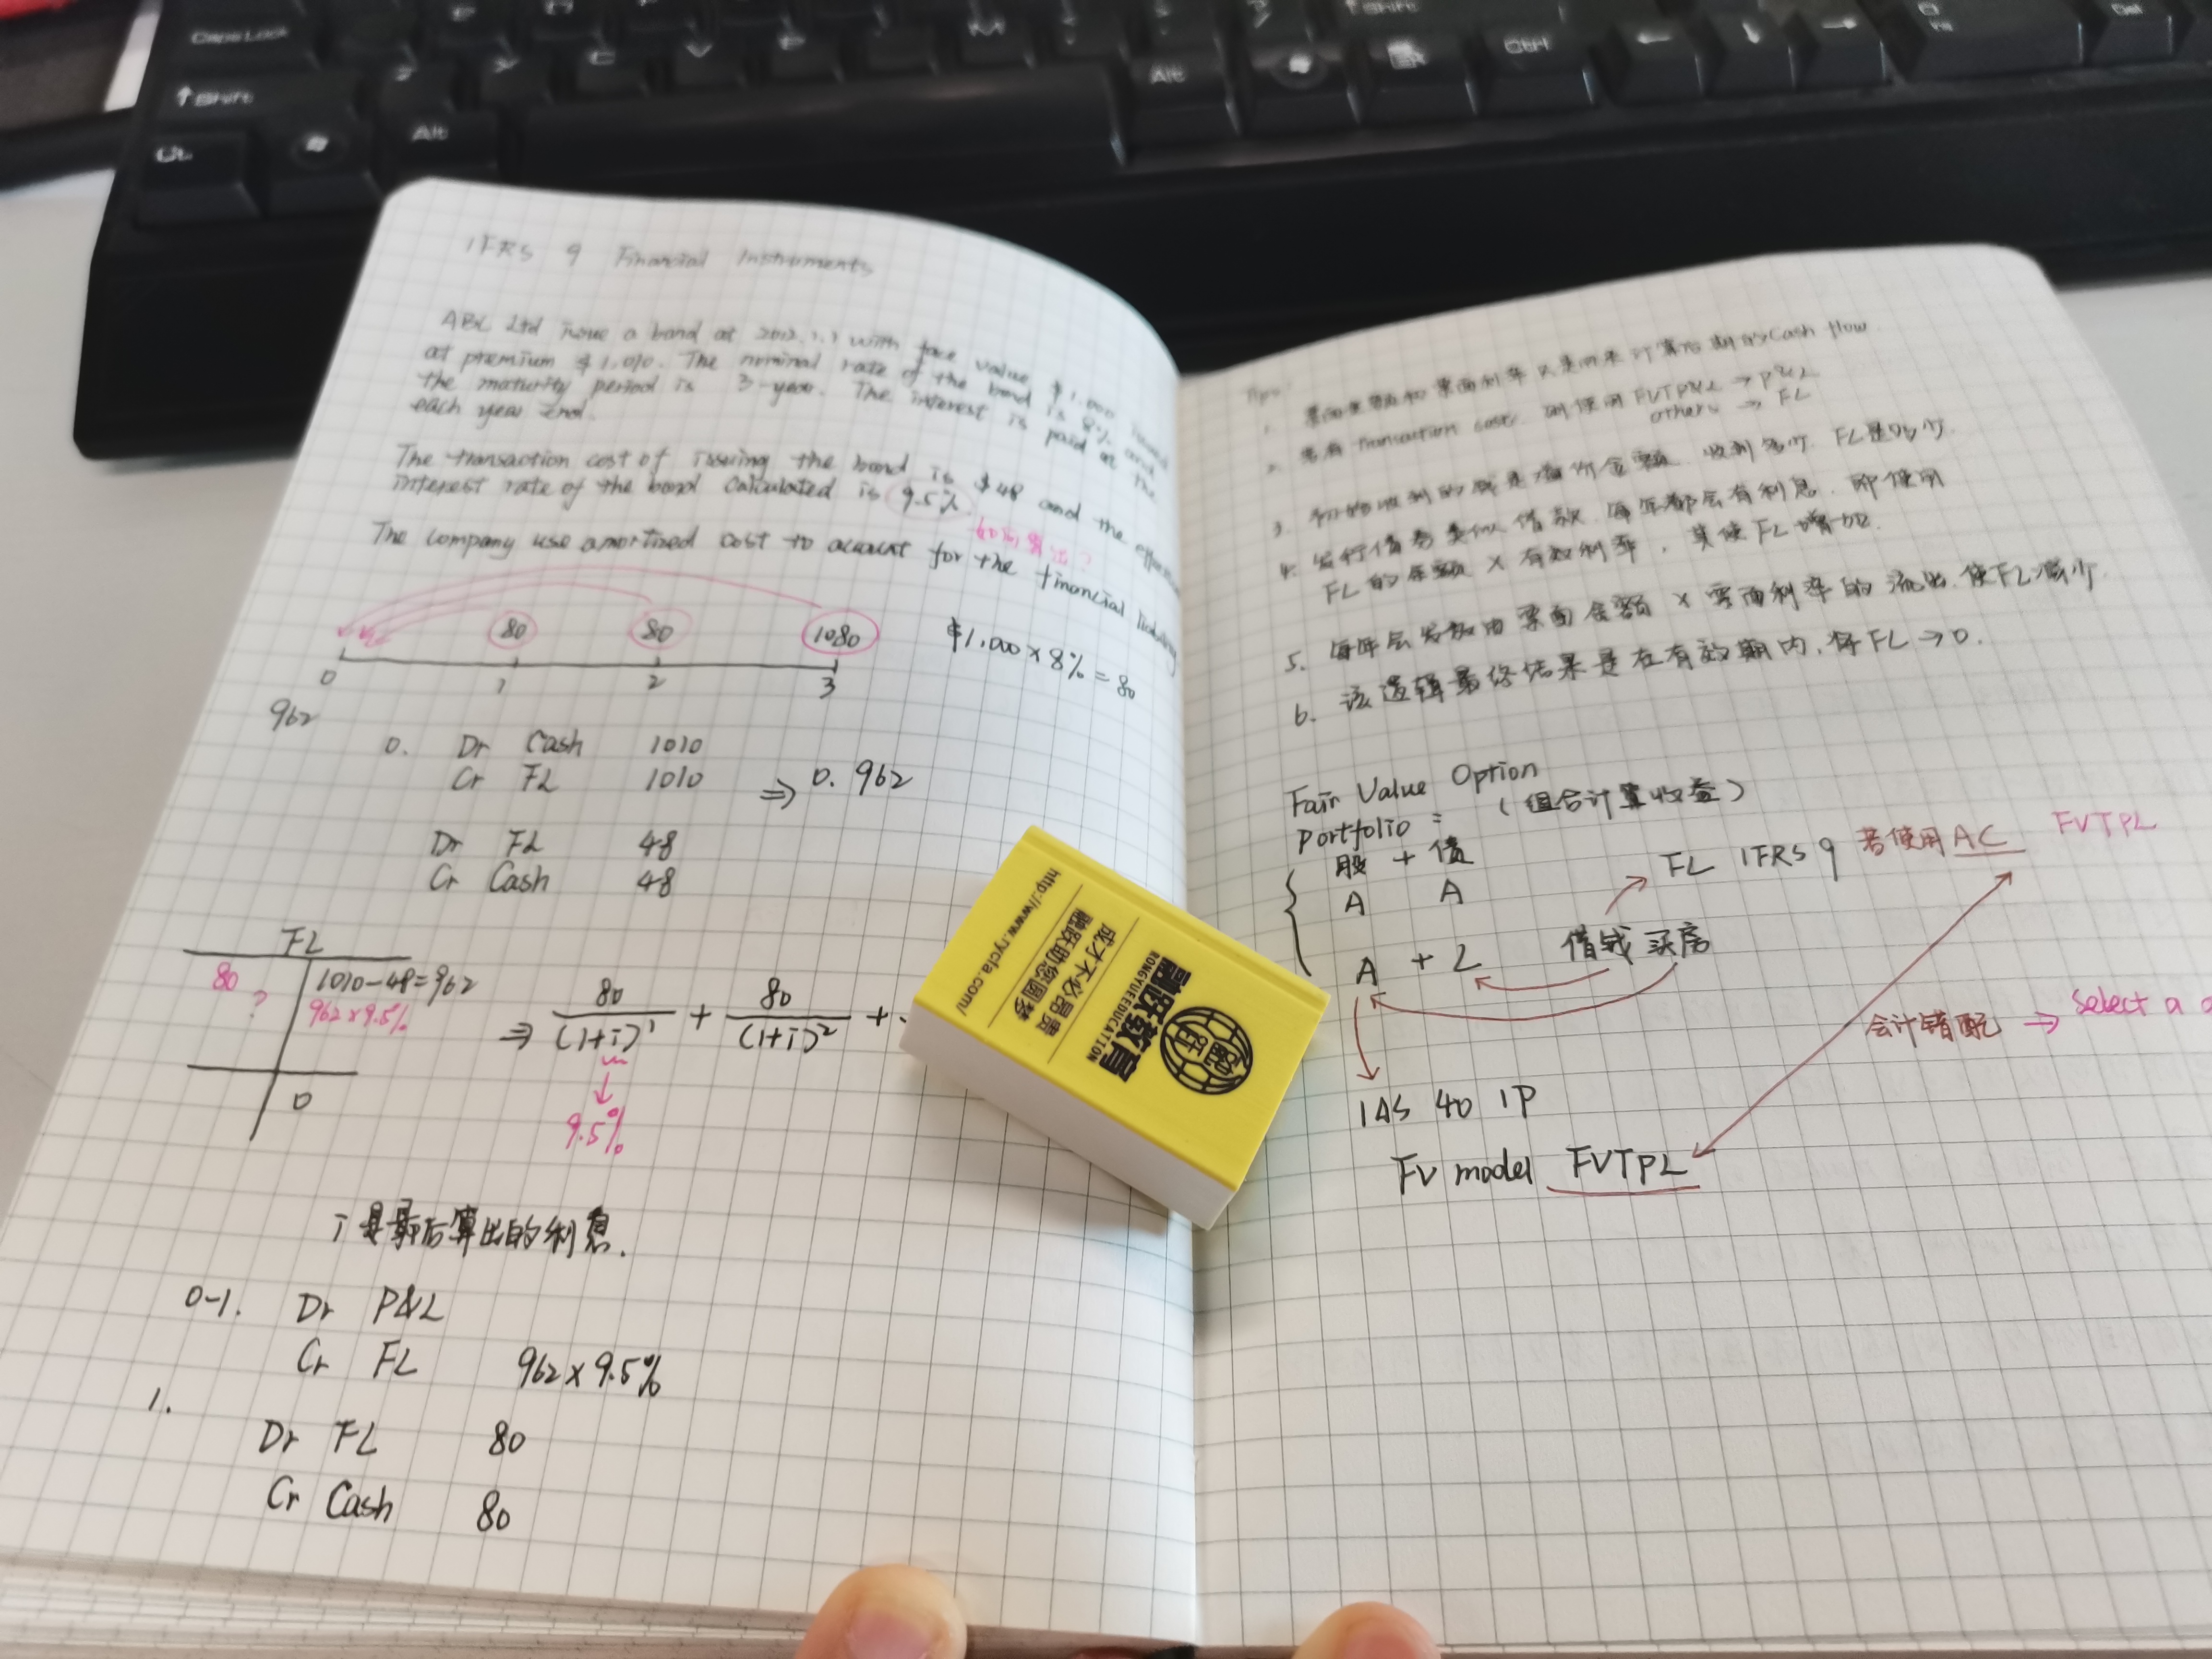 Caps Lock
↑ Shift
Alt
Alt
Ctrl
↑ Shift
←
↓
→
Del
IFRS 9 Financial Instruments
ABC Ltd issue a bond at 2012.1.1 with face value $1.000 issued
at premium $1.010. The nominal rate of the bond is 8% and
the maturity period is 3-year. The interest is paid at the
each year end.
The transaction cost of issuing the bond is $48 and the effective
interest rate of the bond calculated is 9.5%.
The company use amortized cost to account for the financial liability
80 80 1080
$1.000 × 8% = 80
0 1 2 3
962
0. Dr Cash 1010
Cr FL 1010 ⇒ 0. 962
Dr FL 48
Cr Cash 48
FL
80 ? 1010-48=962
962×9.5%
0
⇒ 80/(1+i)¹ + 80/(1+i)² +
↓
9.5%
i是最后算出的利息.
0-1. Dr P&L
Cr FL 962×9.5%
1.
Dr FL 80
Cr Cash 80
http://www.rycfa.com/
融跃助您圆梦
成才不必昂贵
融跃教育
RONGYUEEDUCATION
Tips:
1. 票面金额和票面利率只是用来计算后期的Cash flow.
2. 若有 transaction cost. 则使用 FVTP&L → P&L
others → FL
3. 收到多少. FL是多少.
4. 发行债券类似借款. 每年都会有利息. 即使用
FL的余额 × 有效利率, 其使FL增加.
5. 每年会发放由票面金额 × 票面利率的流出. 使FL减少.
6. 该逻辑最终结果是在有效期内, 将FL→0.
Fair Value Option
Portfolio: (组合计算收益)
股 + 债
A A
A + L
借钱买房
FL IFRS 9 若使用AC FVTPL
会计错配 ⇒ Select a
IAS 40 IP
FV model FVTPL